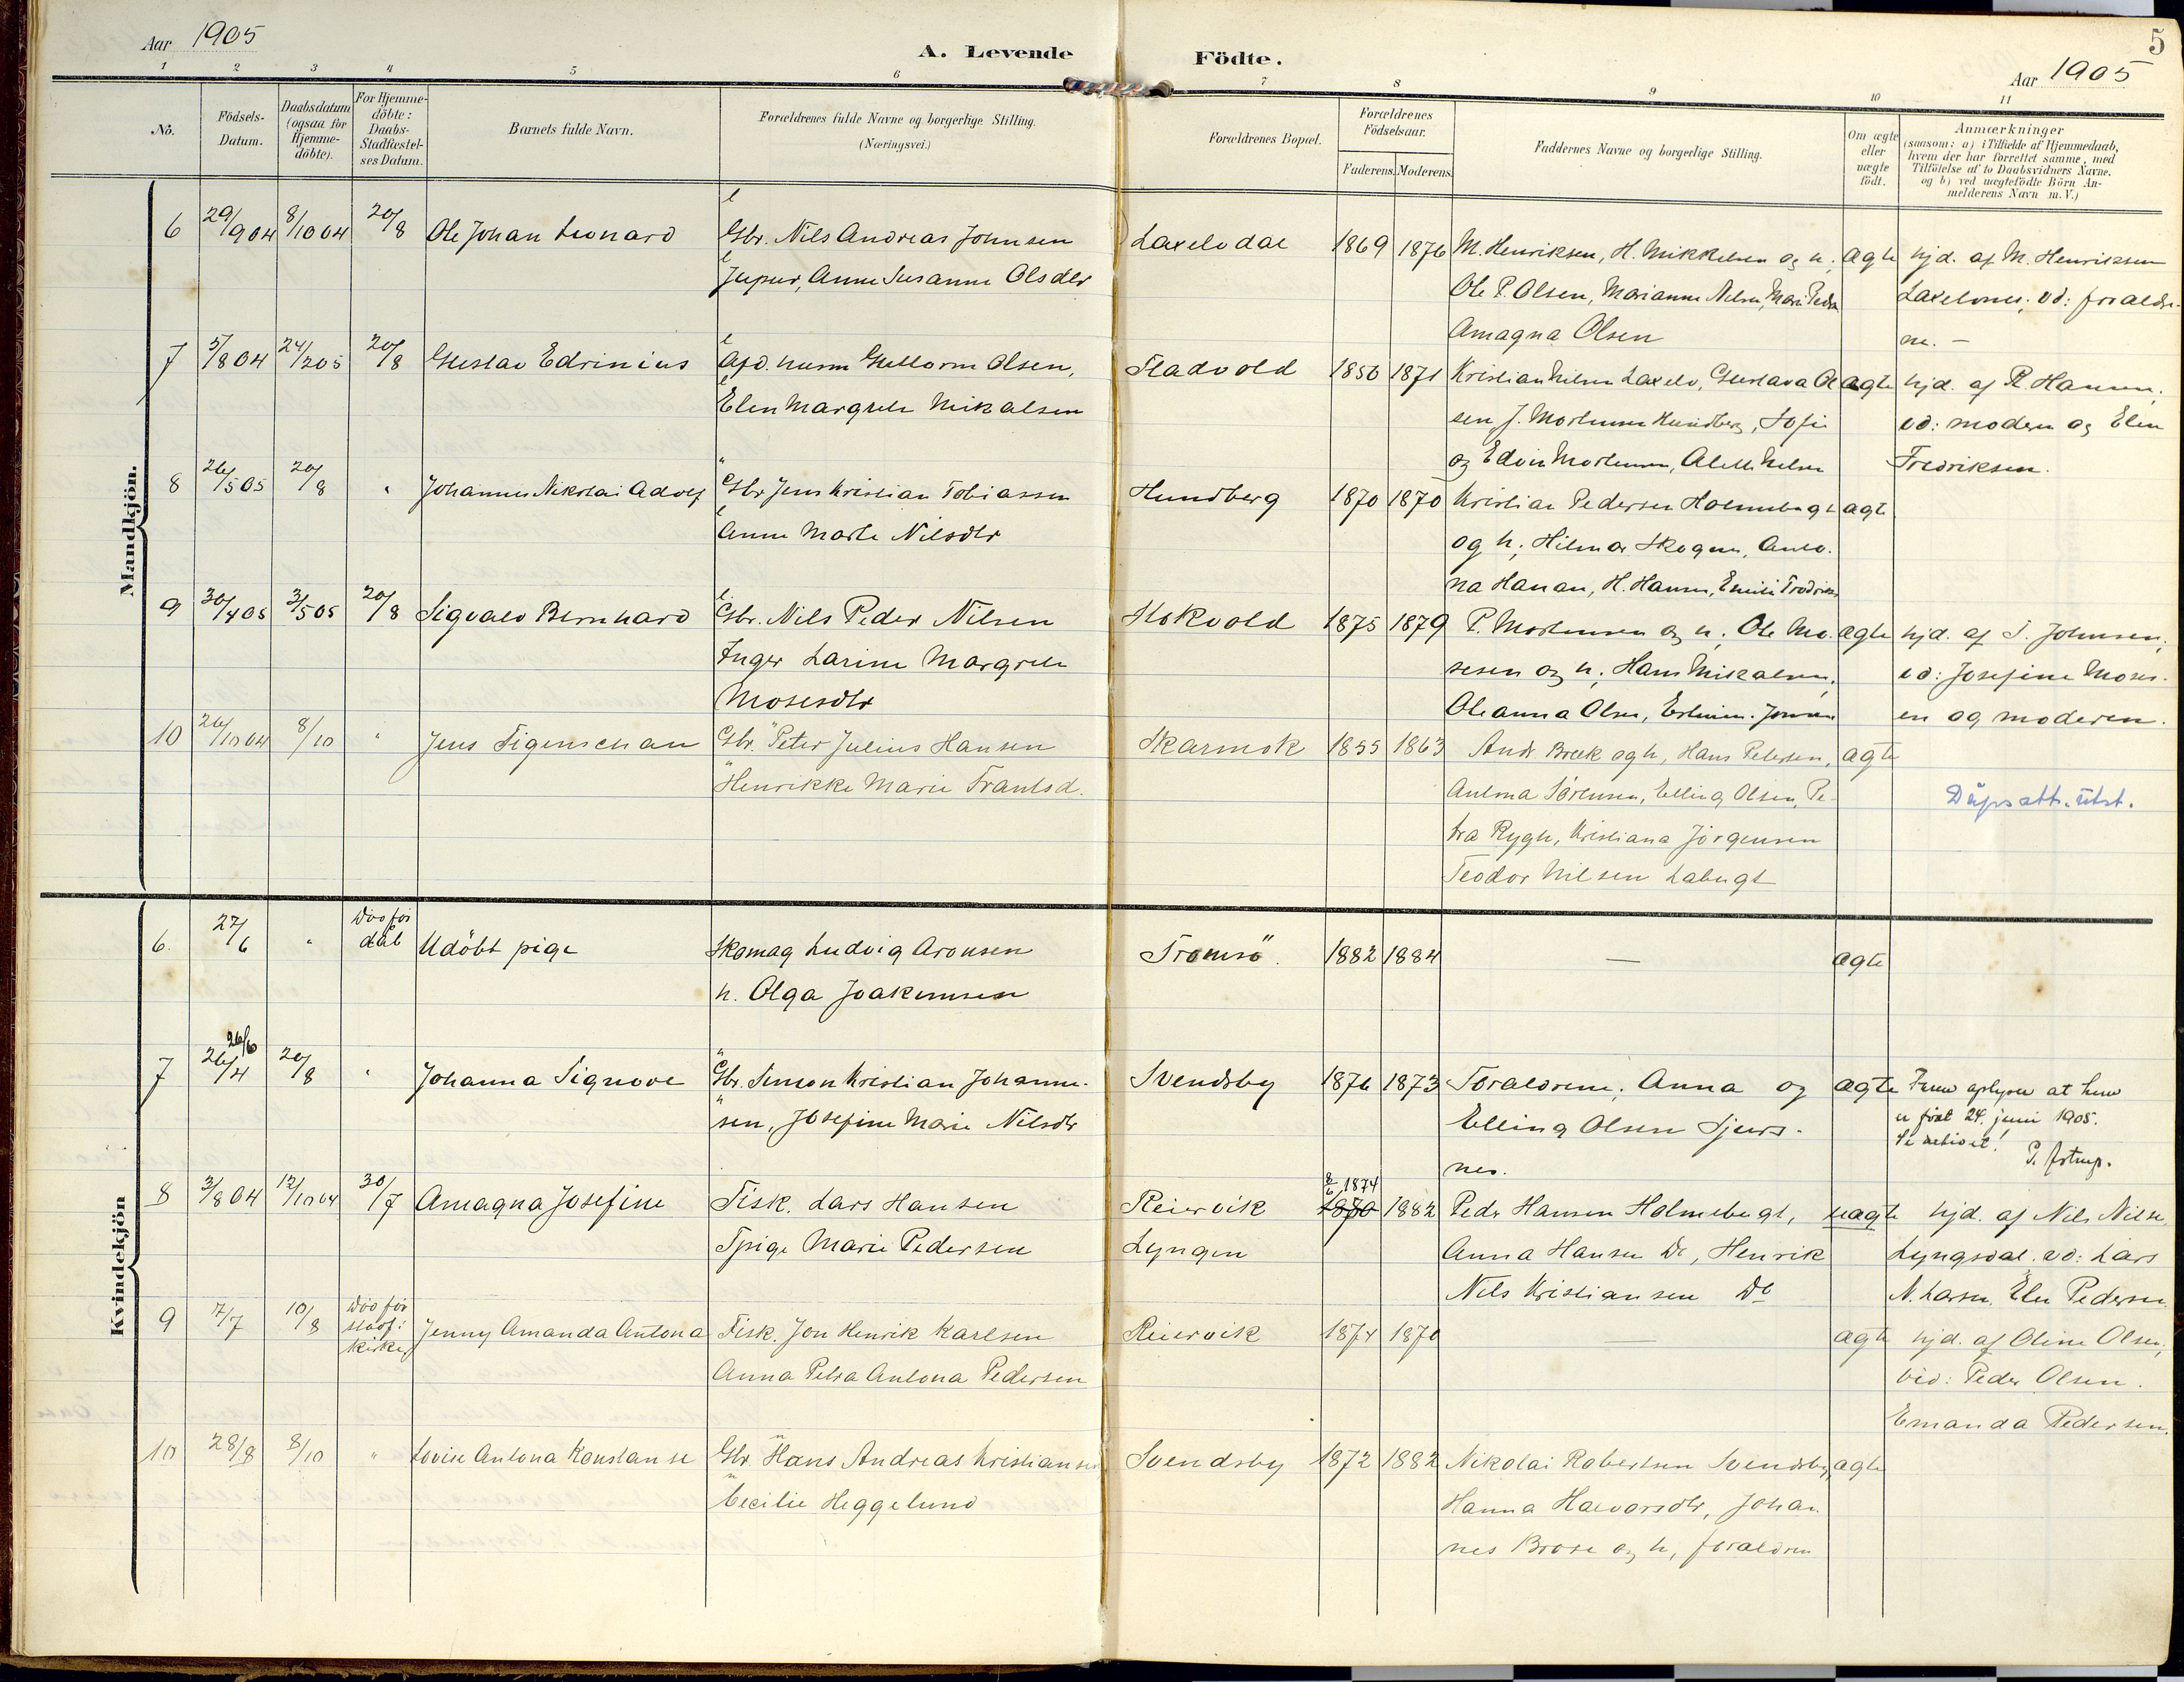 Aar 1905
A. Levende Födte.
5
Aar 1905
1 2 3 4 5 6 7 8 9 10 11
No.
Födsels-
Datum.
Daabsdatum
(ogsaa for
Hjemme-
döbte).
For Hjemme-
döbte:
Daabs-
Stadfæstel-
ses Datum.
Barnets fulde Navn.
Forældrenes fulde Navne og borgerlige Stilling.
(Næringsvei.)
Forældrenes Bopæl.
Forældrenes
Födselsaar.
Faderens. Moderens.
Faddernes Navne og borgerlige Stilling.
Om ægte
eller
uægte
födt.
Anmærkninger
(saasom: a) i Tilfælde af Hjemmedaab,
hvem der har forrettet samme, med
Tilföielse af to Daabsvidners Navne.
og b) ved uægtefödte Börn An-
melderens Navn m.V.)
Mandkjön.
6 29/9 04 8/10 04 20/8 Ole Johan Leonard Gbr. Nils Andreas Johnsen Laxelvdal 1869 1876 M. Henriksen, H. Mikkelsen og h; ægte hjd. af M. Henriksen
Anne Susanne Olsdtr Ole P. Olsen, Marianne Nilsen,
Amagna Olsen ne. —
7 5/8 04 24/2 05 20/8 Gustav Edvinius Guttorm Olsen, 1856 1871 Kristian Nilsen Laxelv, Gustava Ol ægte hjd. af R. Hansen;
Elen Margrete Mikalsen sen, J. Mortensen Hundberg, Sofie vd: moderen og Elen
og Edvin Mortensen, Nilsen Fredriksen.
8 26/5 05 20/8 " Johannes Nikolai Adolf Gbr Jens Kristian Tobiassen Hundberg 1870 1870 Kristian Pedersen Holmebugt ægte
Anne Marte Nilsdtr og h; Hilmar Skogen, Anto-
na Hansen, H. Hansen,
9 30/4 05 3/5 05 20/8 Sigvald Bernhard Gbr. Nils Peder Nilsen 1875 1879 P. Mortensen og h; Ole Mo- ægte hjd. af J. Johnsen;
Inger Larine Margrete sesen og h; Hans Mikalsen, vd: Josefine Moses-
Mosesdtr Oleanna Olsen, en og moderen.
10 26/10 04 8/10 " Jens Gbr. Peter Julius Hansen Skarmok 1855 1863 Andr. Bræk og h, Hans Petersen, ægte
Henrikke Marie Frantsd. Sörensen, Elling Olsen, Pe- Dåpsatt. utst.
tra Rygh, Kristiana Jörgensen
Teodor Nilsen Labugt
Kvindekjön
6. 27/6 " död för dåb Udöbt pige Skomag Ludvig Aronsen Tromsö. 1882 1884 — ægte
h. Olga Joakimsen
7 26/4 26/6 20/8 " Johanna Signove Gbr. Simon Kristian Johanne- Svendsby 1876 1873 Forældrene; Anna og ægte oplyser at hun
sen, Josefine Marie Nilsdtr Elling Olsen Sjurs- er födt 24. juni 1905.
nes.
8 3/8 04 12/10 04 30/7 Amagna Josefine Fisk. Lars Hansen Reiervik 1880 1874 1882 Peder Hansen Holmebugt, uægte hjd. af Nils Nilsen
Tpige Marie Pedersen Lyngen Anna Hansen Do, Henrik Lyngsdal. vd: Lars
Nils Kristiansen Do N. Larsen, Elen Pedersen.
9 7/7 10/8 död för stadf: i kirken Jenny Amanda Antona Fisk. Jon Henrik Karlsen Reiervik 1874 1870 — ægte hjd. af Oline Olsen;
Anna Petra Antona Pedersen vid: Peder Olsen.
Emanda Pedersen.
10 28/8 8/10 " Lovise Antona Konstanse Gbr Hans Andreas Kristiansen Svendsby 1872 1882 Nikolai Robertsen Svendsby, ægte
Cecilie Heggelund Hanna Halvorsdtr, Johan-
nes og h, forældrene